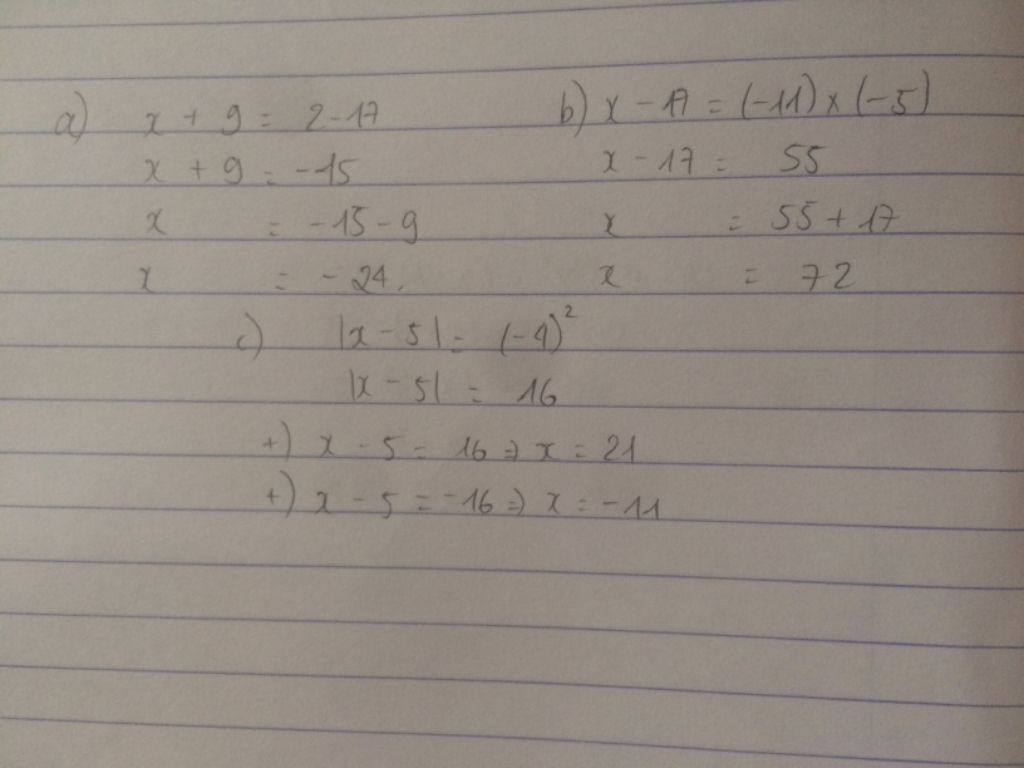 a) x + 9 = 2-17
x + 9 = -15
x = -15-9
x = -24.
b) x - 17 = (-11) x (-5)
x - 17 = 55
x = 55 + 17
x = 72
c) |x - 5| = (-4)²
|x - 5| = 16
+) x - 5 = 16 => x = 21
+) x - 5 = -16 => x = -11